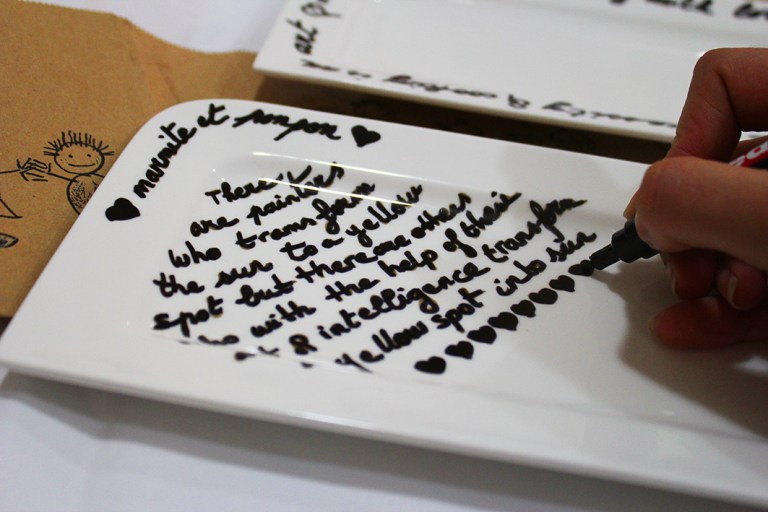 marmite et pompon
There
are painters
who transform
the sun to a yellow
spot but there are others
with the help of their
& intelligence transform
yellow spot into sun
art
with
cooking &